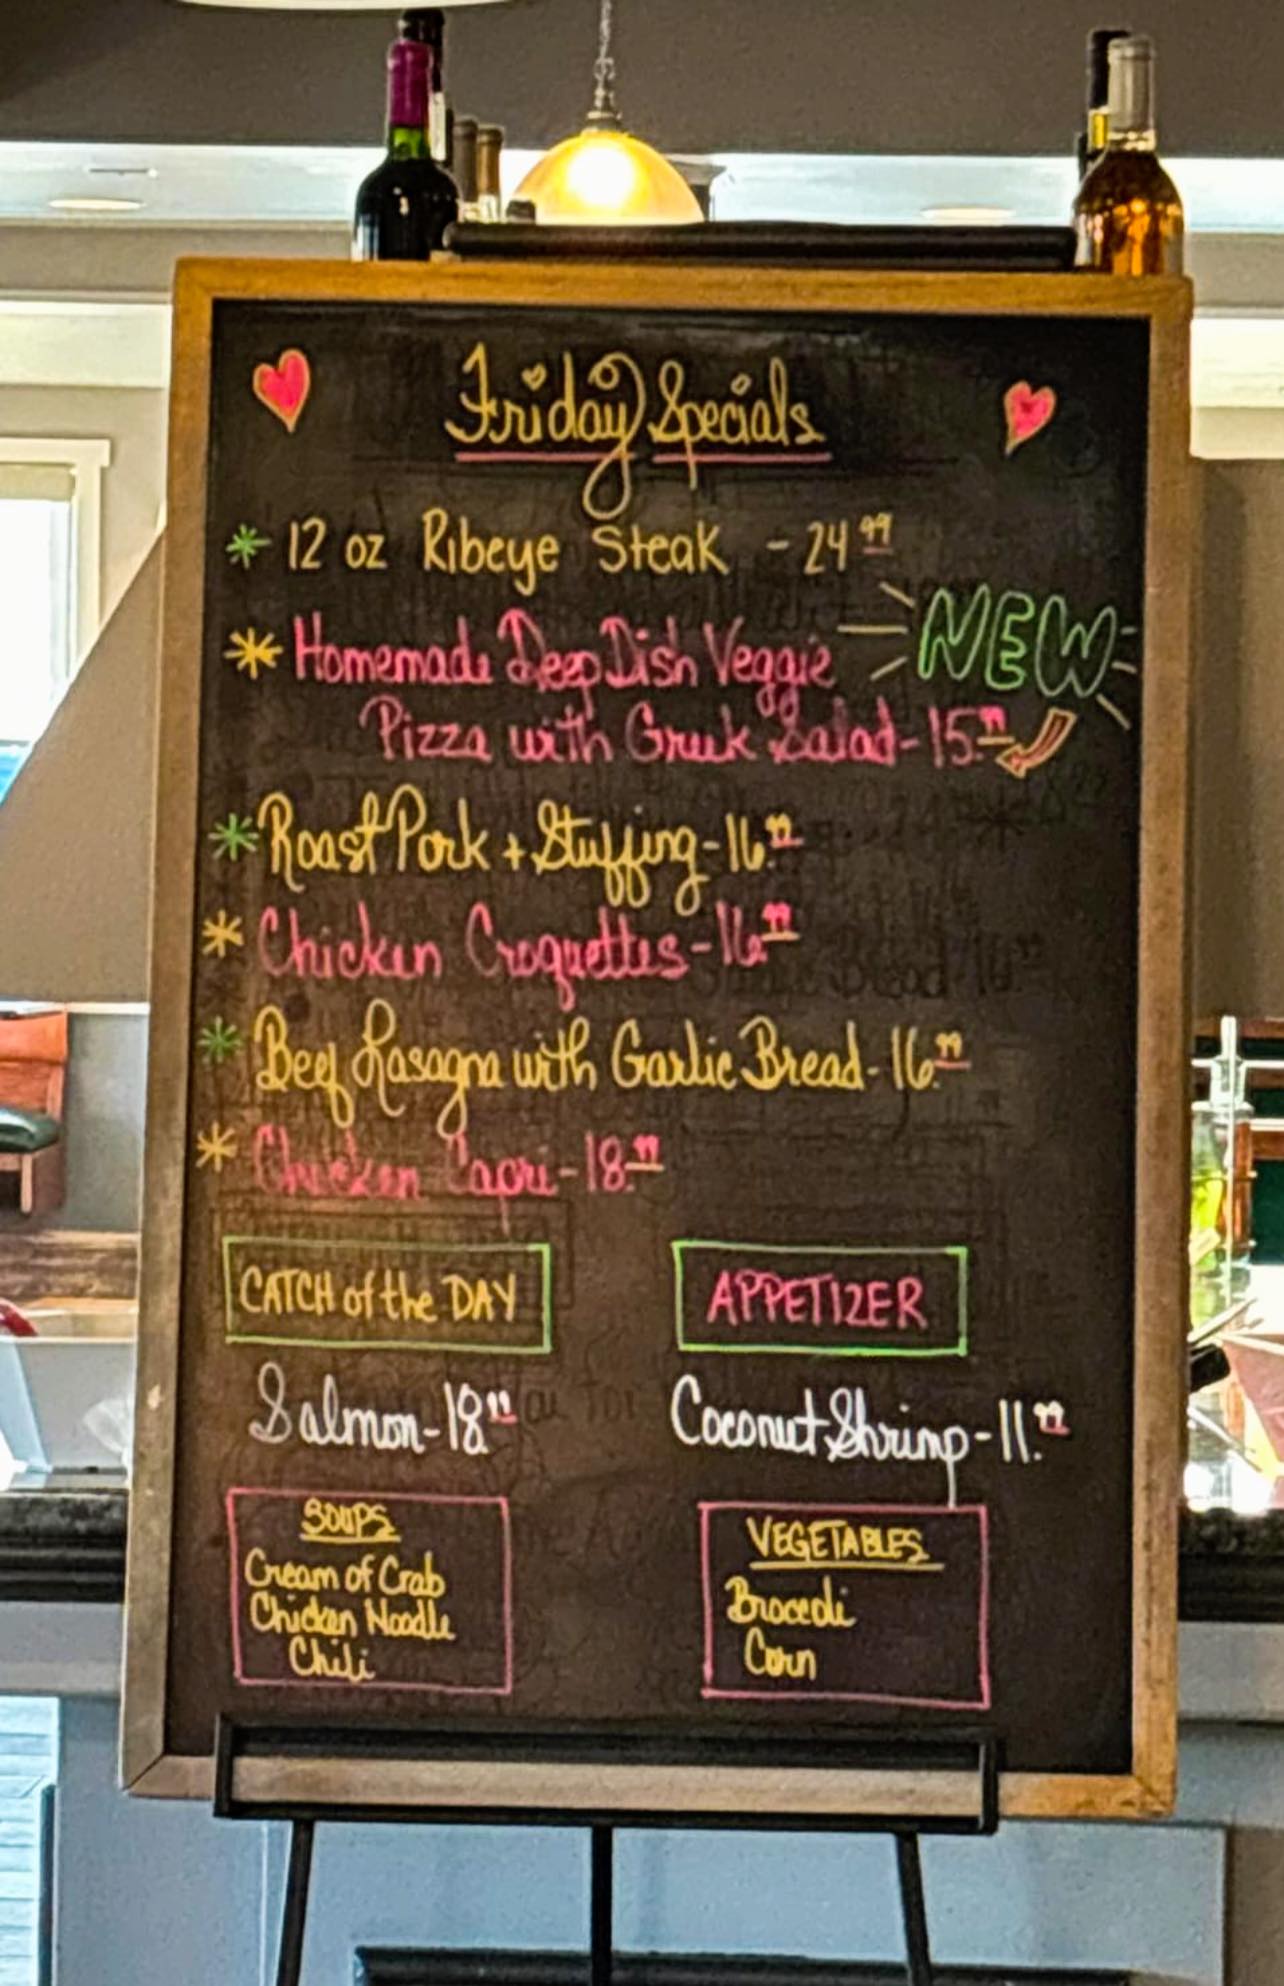 Friday Specials
* 12 oz Ribeye Steak - 24 99
NEW
* Homemade Deep Dish Veggie
Pizza with Greek Salad - 15.99
* Roast Pork + Stuffing - 16.99
* Chicken Croquettes - 16.99
* Beef Lasagna with Garlic Bread - 16.99
* Chicken Capri - 18.99
CATCH of the DAY
Salmon - 18.99
APPETIZER
Coconut Shrimp - 11.99
SOUPS
Cream of Crab
Chicken Noodle
Chili
VEGETABLES
Broccoli
Corn